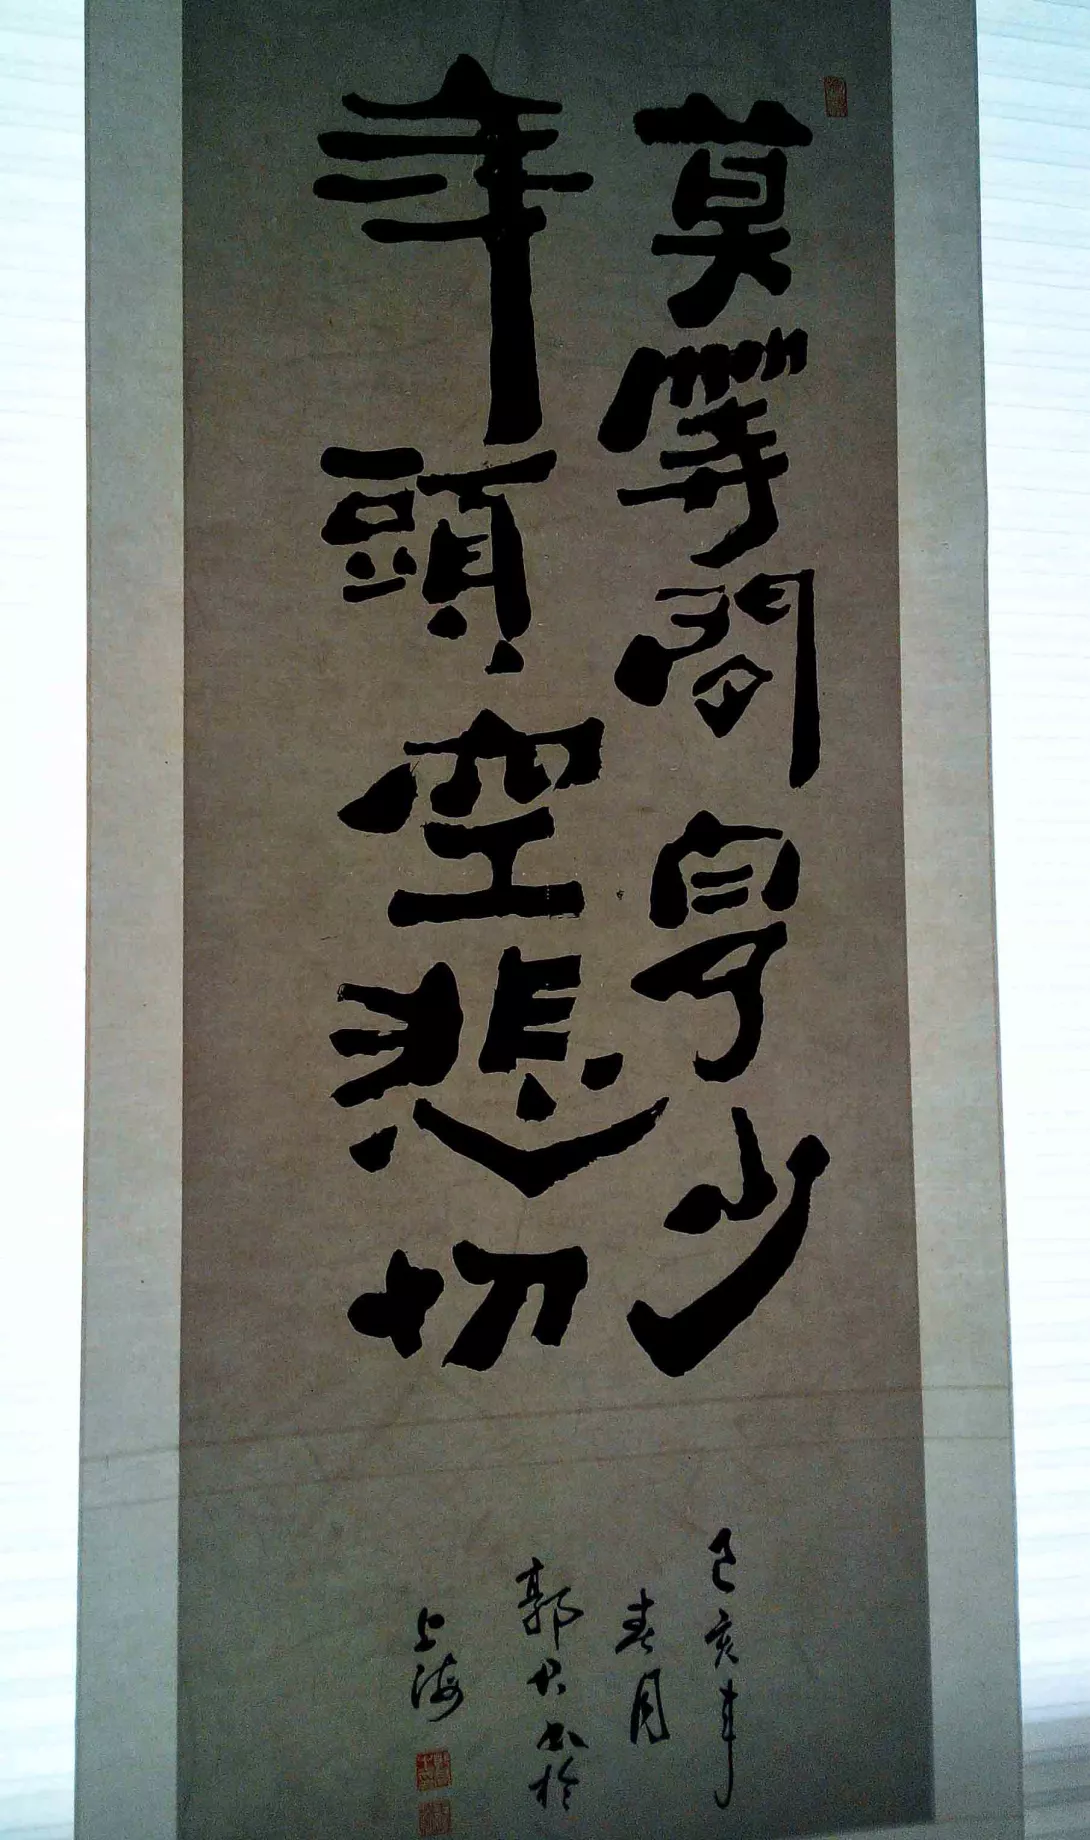 莫等閒白了少
年頭空悲切
己亥年
春月
郭书於
上海